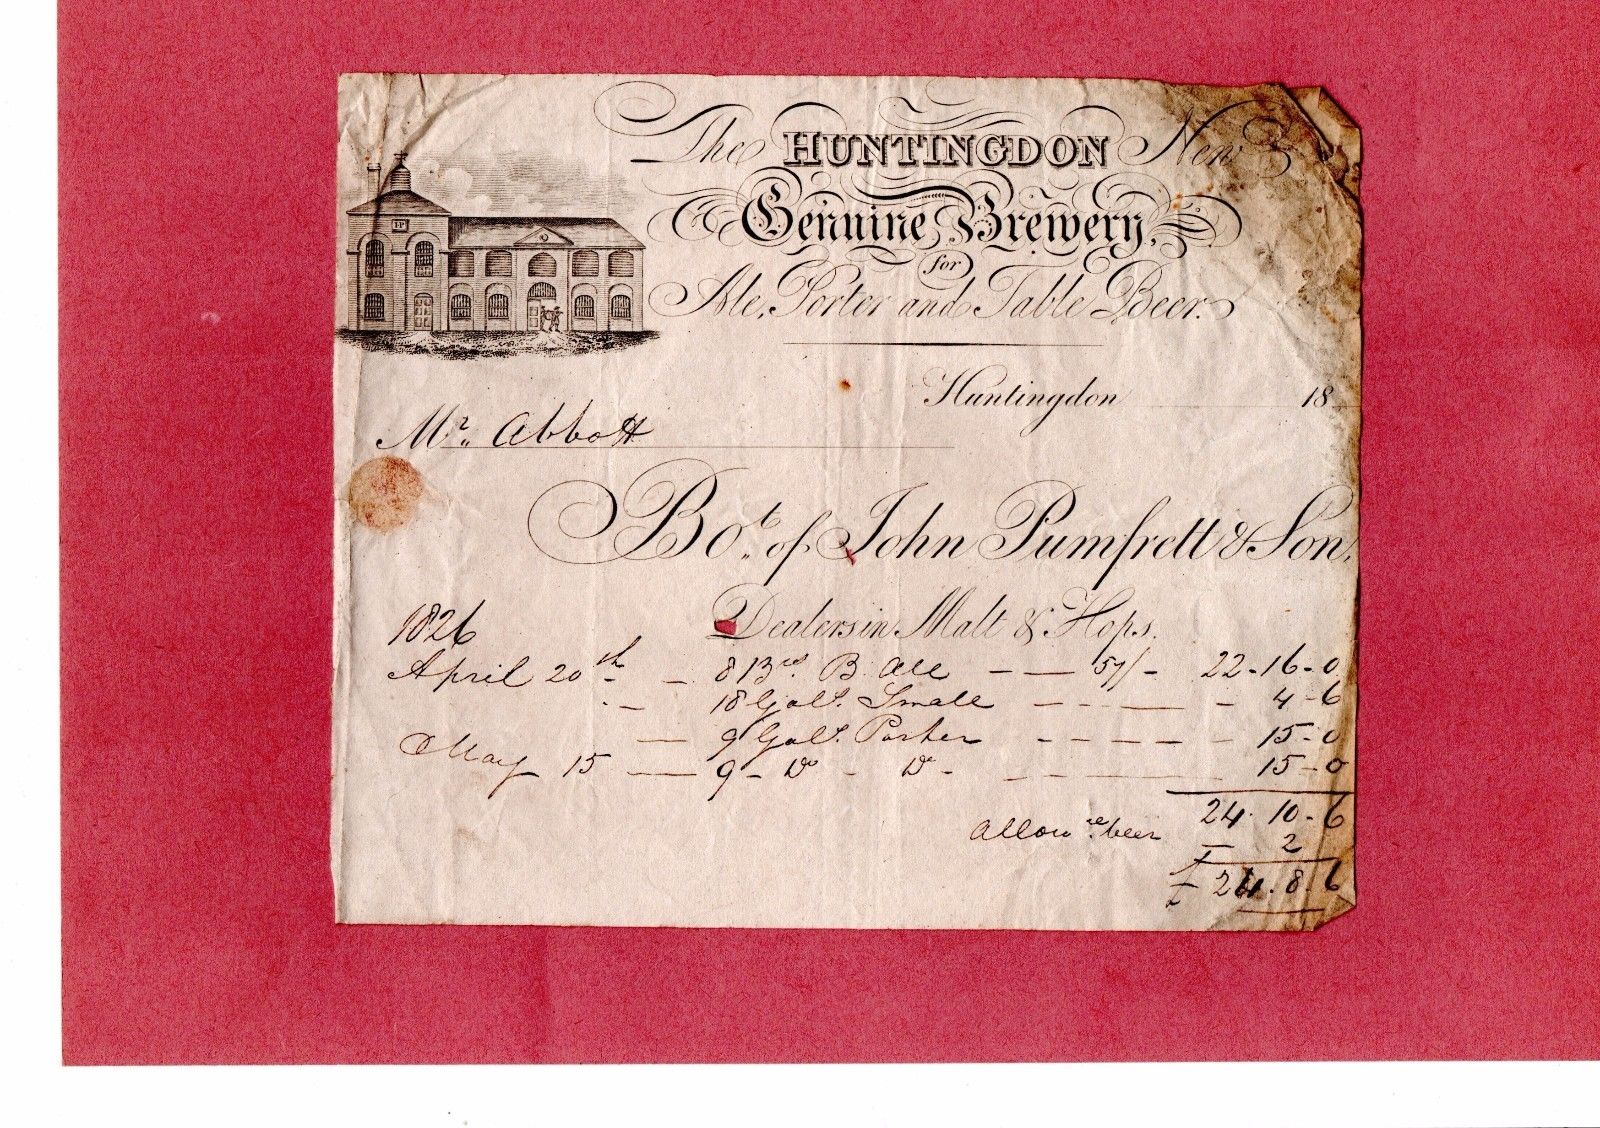 The HUNTINGDON New
Genuine Brewery,
for
Ale, Porter and Table Beer.
I·P
Huntingdon 18
Mr. Abbott
Bot. of John Pumfrett & Son,
Dealers in Malt & Hops.
1826
April 20th - 8 Brls B. Ale - - 57/- 22-16-0
18 Galls. Small - - - - 4-6
9 Galls. Porter - - - - - 15-0
May 15 - 9 - Do - Do - - - - 15-0
24.10-6
Allowce beer - 2
£24.8.6